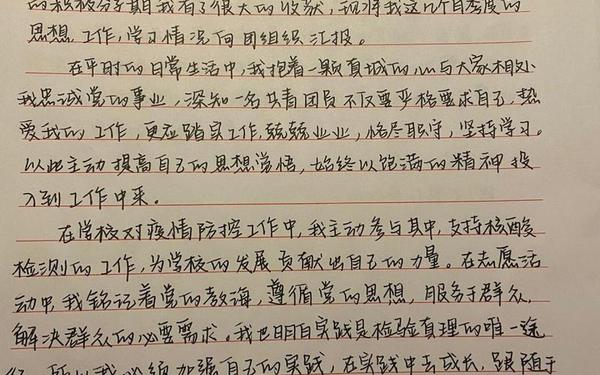 的积极分子期我有了很大的收获，现将我这几个自季度的
思想，工作，学习情况向团组织汇报。
在平时的日常生活中，我抱着一颗真诚的心与大家相处
我忠诚党的事业，深知一名共青团员不仅要严格要求自己，热
爱我的工作，更应踏实工作，兢兢业业，恪尽职守，坚持学习。
以此主动提高自己的思想觉悟，始终以饱满的精神投
入到工作中来。
在学校对疫情防控工作中，我主动参与其中，支持核酸
检测的工作，为学校的发展贡献出自己的力量。在志愿活
动中，我铭记着党的教诲，遵循党的思想，服务于群众，
解决群众的必要需求。我也明白实践是检验真理的唯一途
径，所以我必须加强自己的实践，在实践中去成长，跟随于